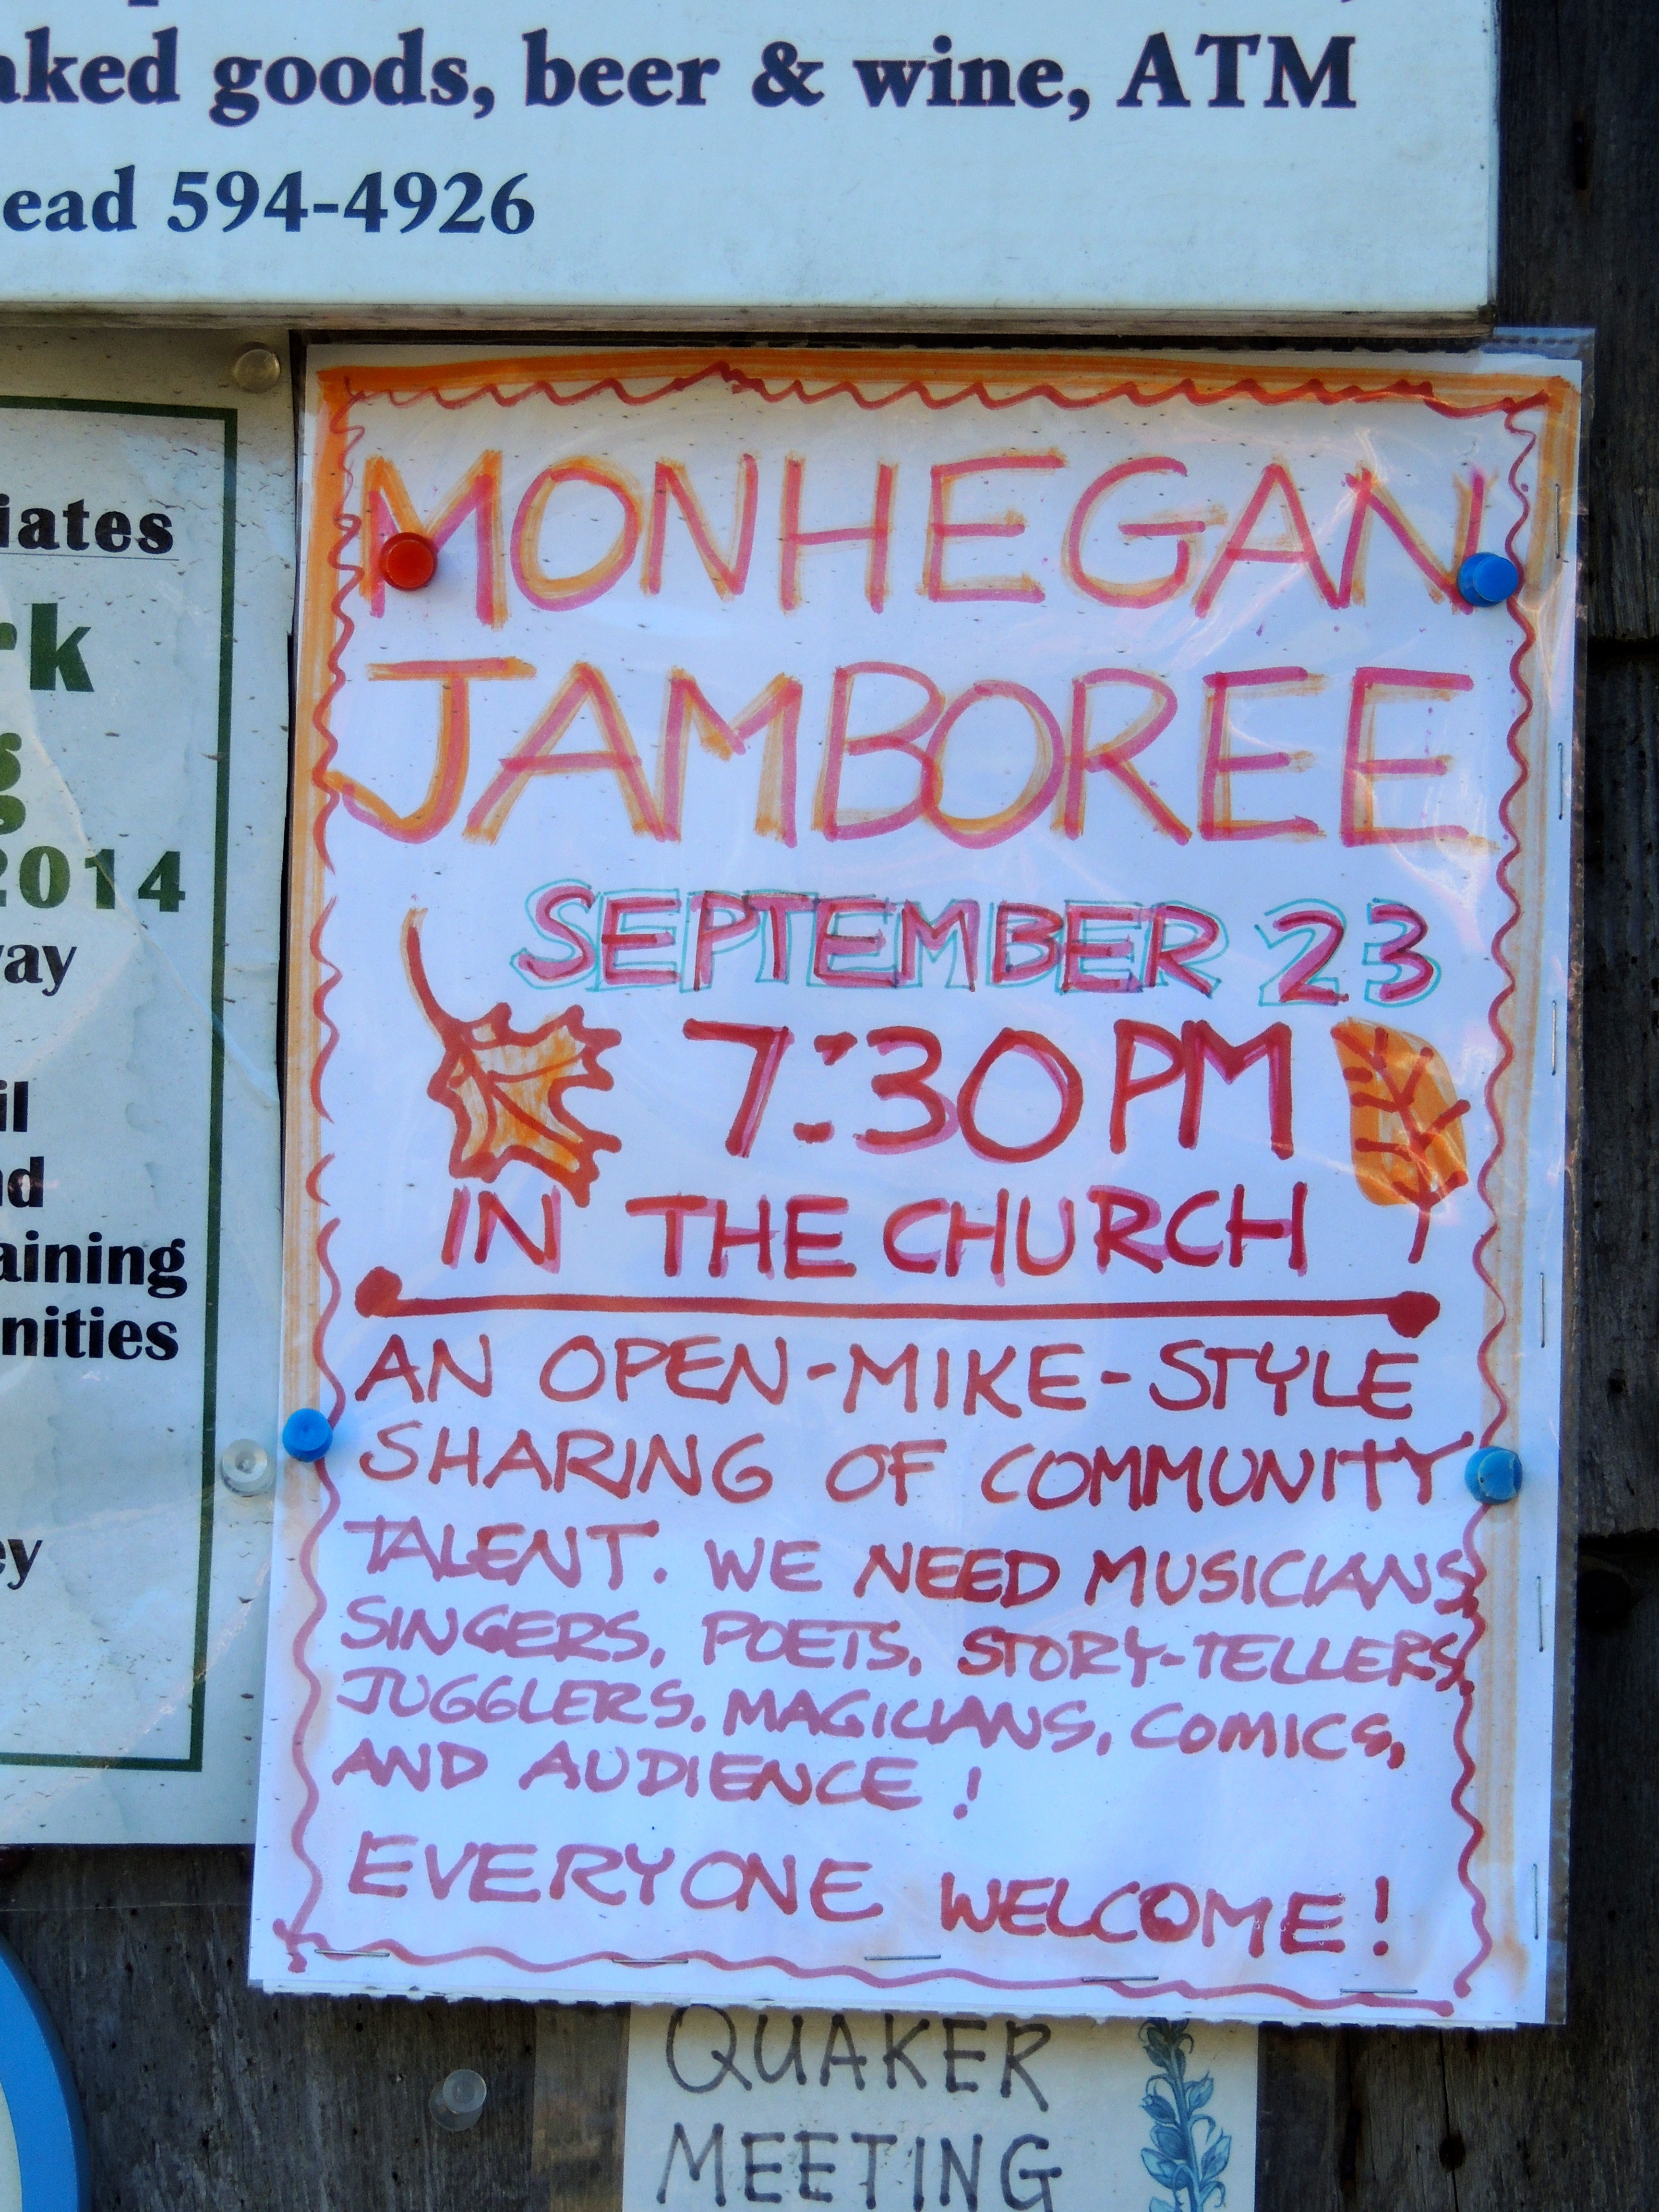 goods, beer & wine, ATM
594-4926
2014
MONHEGAN
JAMBOREE
SEPTEMBER 23
7:30 PM
IN THE CHURCH
AN OPEN-MIKE-STYLE
SHARING OF COMMUNITY
TALENT. WE NEED MUSICIANS,
SINGERS, POETS, STORY-TELLERS,
JUGGLERS, MAGICIANS, COMICS,
AND AUDIENCE!
EVERYONE WELCOME!
QUAKER
MEETING